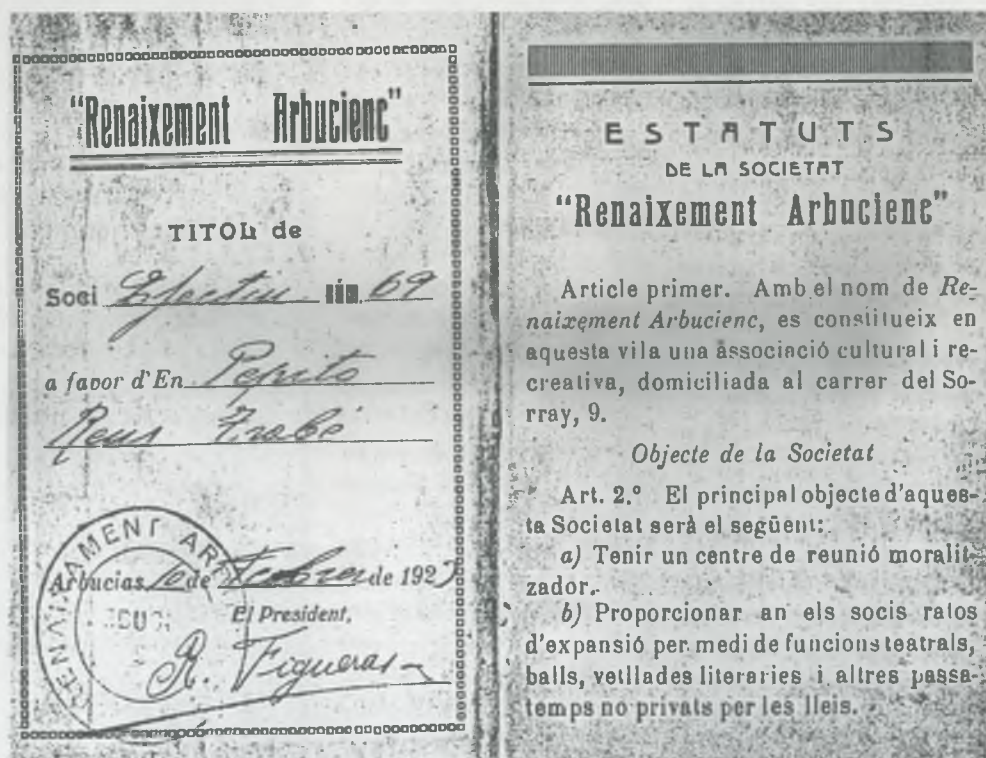 "Renaixement Arbucienc"
TITOL de
Soci Efectiu núm. 69
a favor d'En Pepito
Reus
RENAIXAMENT AR
Arbucias 10 de Febrer de 192
El President,
R. Figueras
ESTATUTS
DE LA SOCIETAT
"Renaixement Arbucienc"
Article primer. Amb el nom de Re-
naixement Arbucienc, es constitueix en
aquesta vila una associació cultural i re-
creativa, domiciliada al carrer del So-
rray, 9.
Objecte de la Societat
Art. 2.º El principal objecte d'aques-
ta Societat serà el següent:
a) Tenir un centre de reunió moralit-
zador.
b) Proporcionar an els socis ratos
d'expansió per medi de funcions teatrals,
balls, vetllades literaries i altres passa-
temps no privats per les lleis.